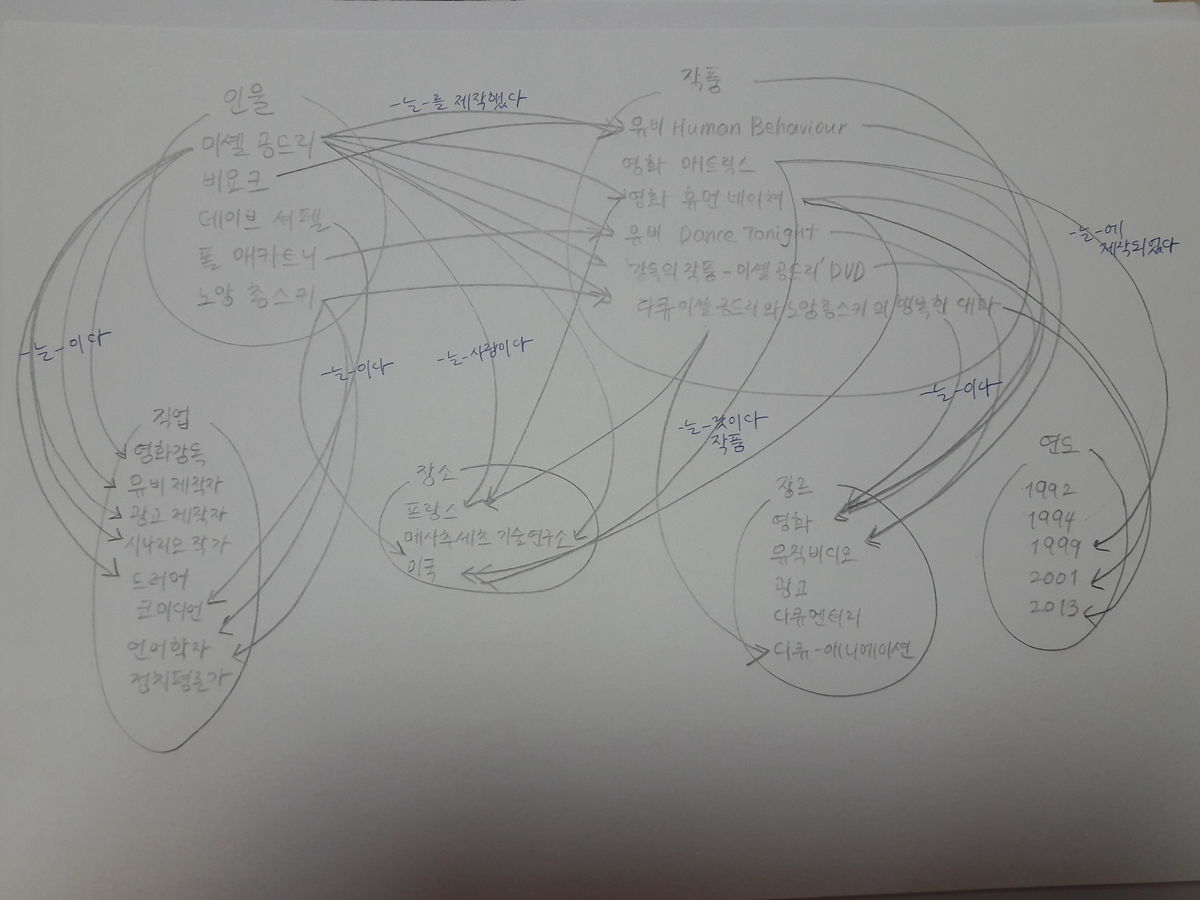 인물
미셸 공드리
비요크
데이브 셔펠
폴 매카트니
노암 촘스키
-는-를 제작했다
작품
뮤비 Human Behaviour
영화 매트릭스
영화 휴먼 네이쳐
뮤비 Dance Tonight
'감독의 작품-미셸 공드리' DVD
다큐 미셸 공드리와 노암 촘스키의 행복한 대화
-는-에
제작되었다
-는-이다
-는-이다
-는-사람이다
-는-것이다
작품
-는-이다
직업
영화감독
뮤비 제작자
광고 제작자
시나리오 작가
드러머
코미디언
언어학자
정치평론가
장소
프랑스
메사추세츠 기술연구소
미국
장르
영화
뮤직비디오
광고
다큐멘터리
다큐-애니메이션
연도
1992
1994
1999
2001
2013